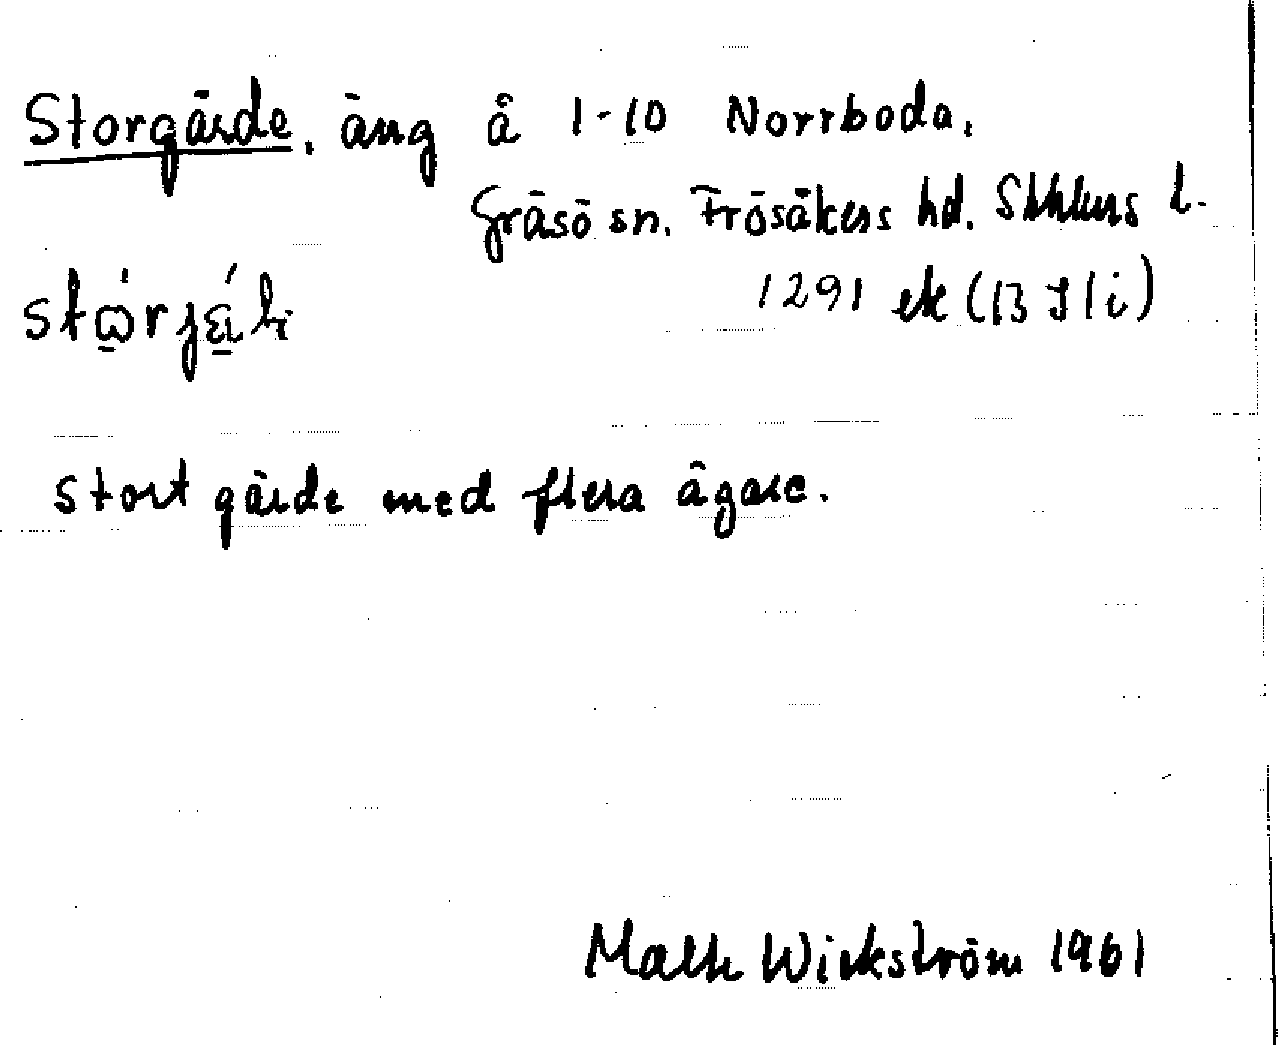 Storgärde, äng å 1-10 Norrboda,
Gräsö sn. Frösåkers hd. Sthlms l.
1291 ek (13 I 1 i)
stort gärde med flera ägare.
Malte Wickström 1961